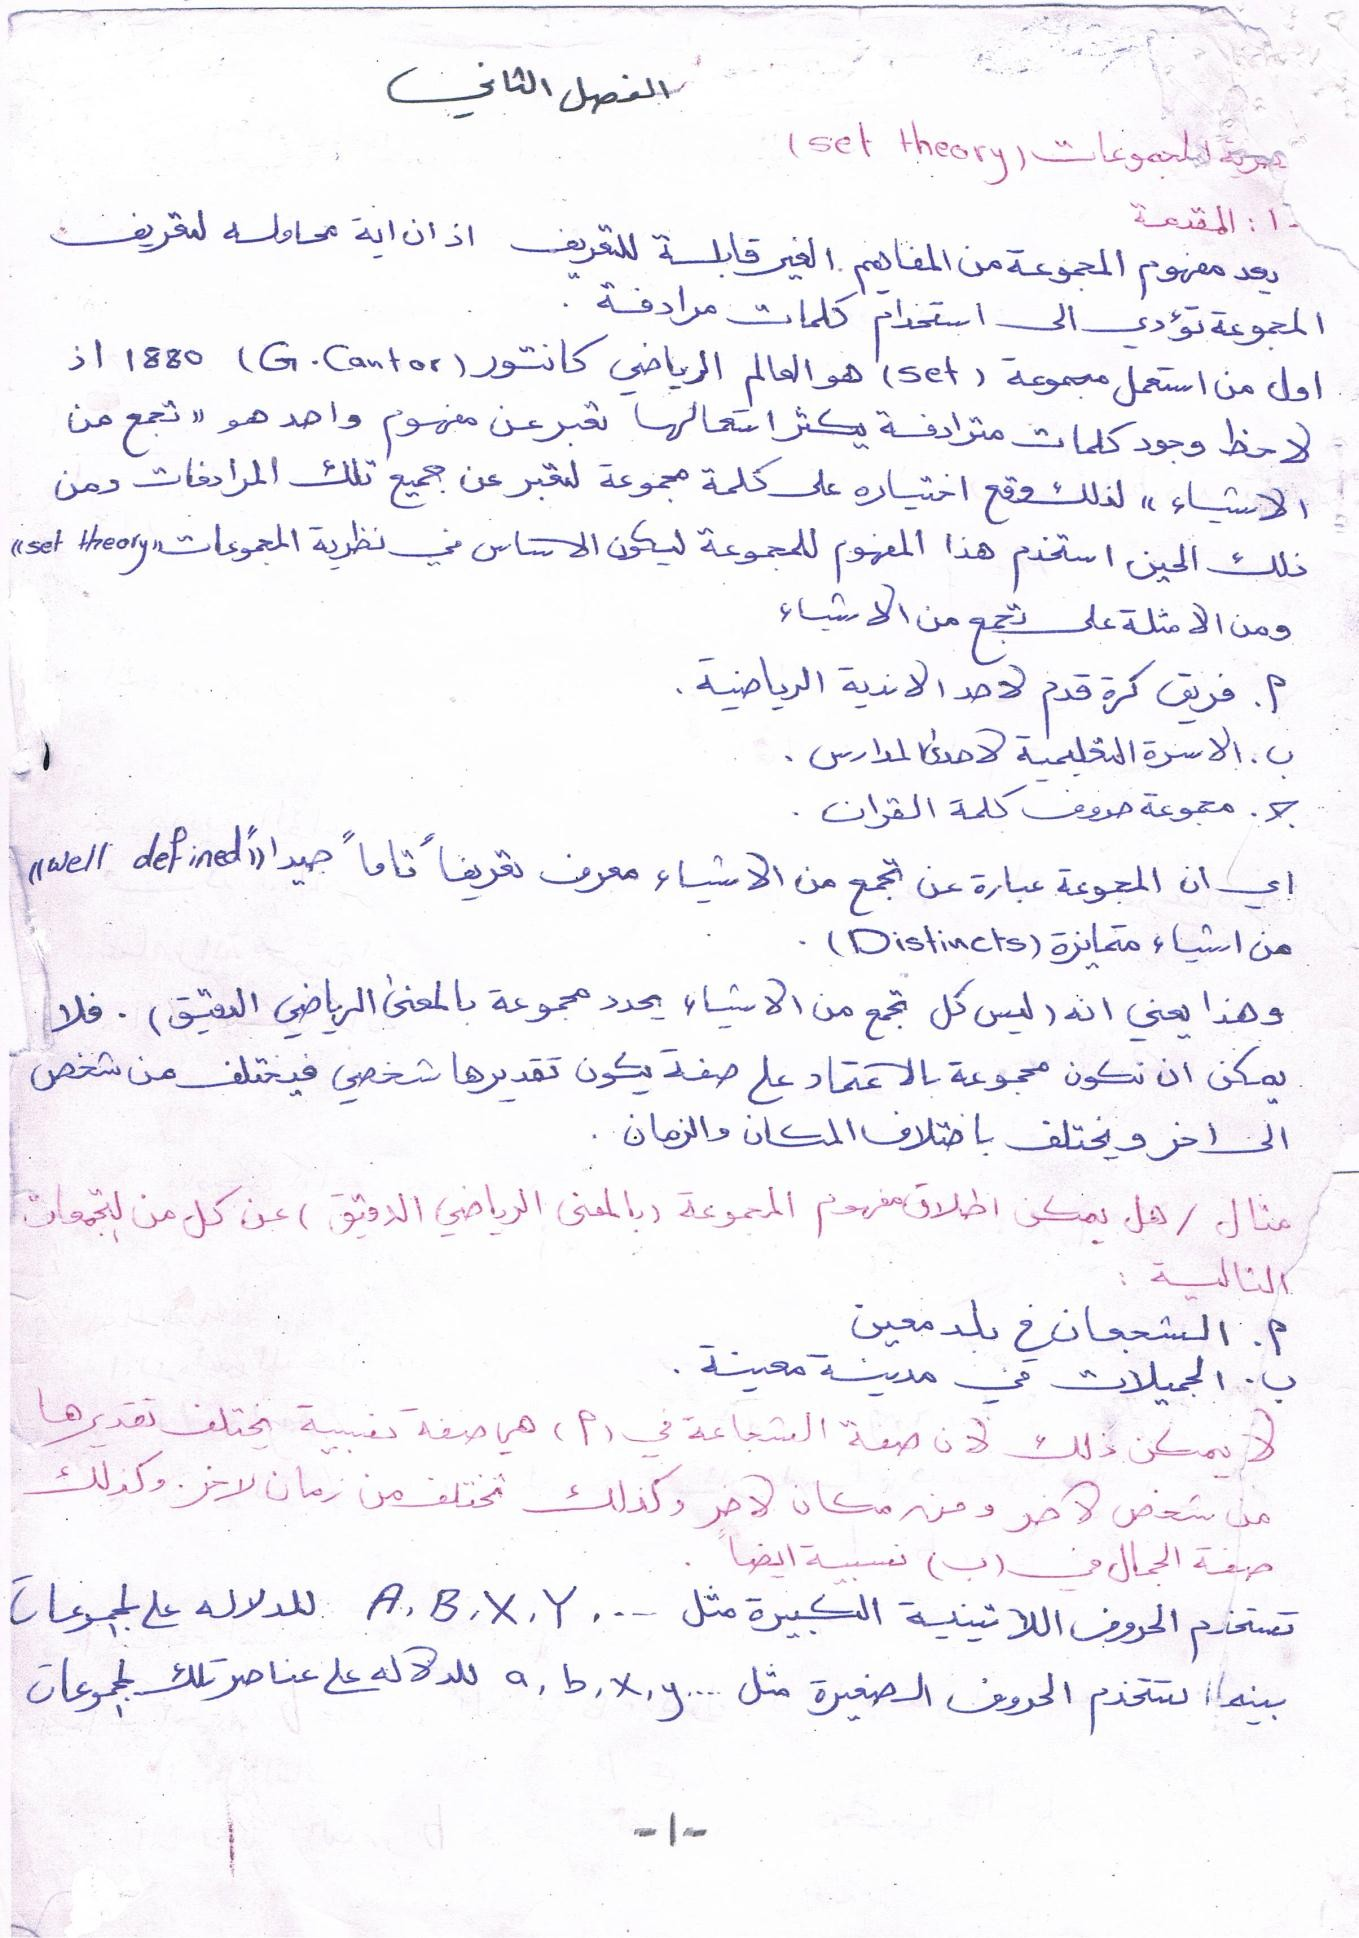 الفصل الثاني
نظرية المجموعات (set theory)
١: المقدمة
يعد مفهوم المجموعة من المفاهيم الغير قابلة للتعريف اذ ان اية محاوله لتعريف
المجموعة تؤدي الى استخدام كلمات مرادفة .
اول من استعمل مجموعة (set) هو العالم الرياضي كانتور (G. Cantor) 1880 اذ
لاحظ وجود كلمات مترادفة يكثر استعمالها تعبر عن مفهوم واحد هو " تجمع من
الاشياء " لذلك وقع اختياره على كلمة مجموعة لتعبر عن جميع تلك المرادفات ومن
ذلك الحين استخدم هذا المفهوم للمجموعة ليكون الاساس في نظرية المجموعات "set theory"
ومن الامثلة على تجمع من الاشياء
أ. فريق كرة قدم لاحد الاندية الرياضية .
ب. الاسرة التعليمية لاحدى المدارس .
جـ. مجموعة حروف كلمة القران .
اي ان المجموعة عبارة عن تجمع من الاشياء معرف تعريفاً تاماً جيداً "well defined"
من اشياء متمايزة (Distincts) .
وهذا يعني انه (ليس كل تجمع من الاشياء يحدد مجموعة بالمعنى الرياضي الدقيق) . فلا
يمكن ان نكون مجموعة بالاعتماد على صفة يكون تقديرها شخصي فيختلف من شخص
الى اخر ويختلف باختلاف المكان والزمان .
مثال / هل يمكن اطلاق مفهوم المجموعة (بالمعنى الرياضي الدقيق) عن كل من التجمعات
التالية :
أ. الشجعان في بلد معين
ب. الجميلات في مدينة معينة .
لا يمكن ذلك لان صفة الشجاعة في (أ) هي صفة نسبية يختلف تقديرها
من شخص لاخر ومن مكان لاخر وكذلك تختلف من زمان لاخر. وكذلك
صفة الجمال في (ب) نسبية ايضاً .
تستخدم الحروف اللاتينية الكبيرة مثل A, B, X, Y, ... للدلاله على المجموعات
بينما تستخدم الحروف الصغيرة مثل a, b, x, y, ... للدلاله على عناصر تلك المجموعات
-١-